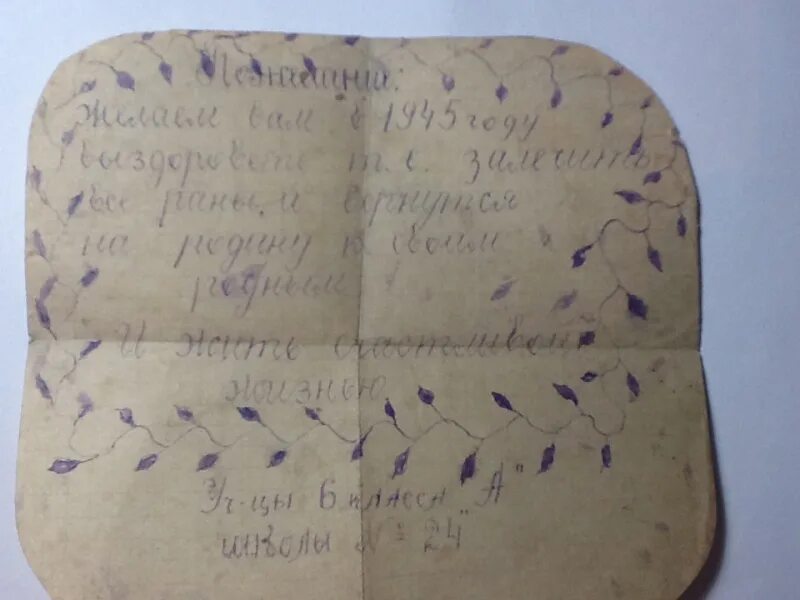 Пожелания:
Желаем вам в 1945 году
выздороветь т.е. залечить
все раны, и вернутся
на родину к своим
родным
И жить счастливой
жизнью
Уч-цы 6 класса "А"
школы № 24